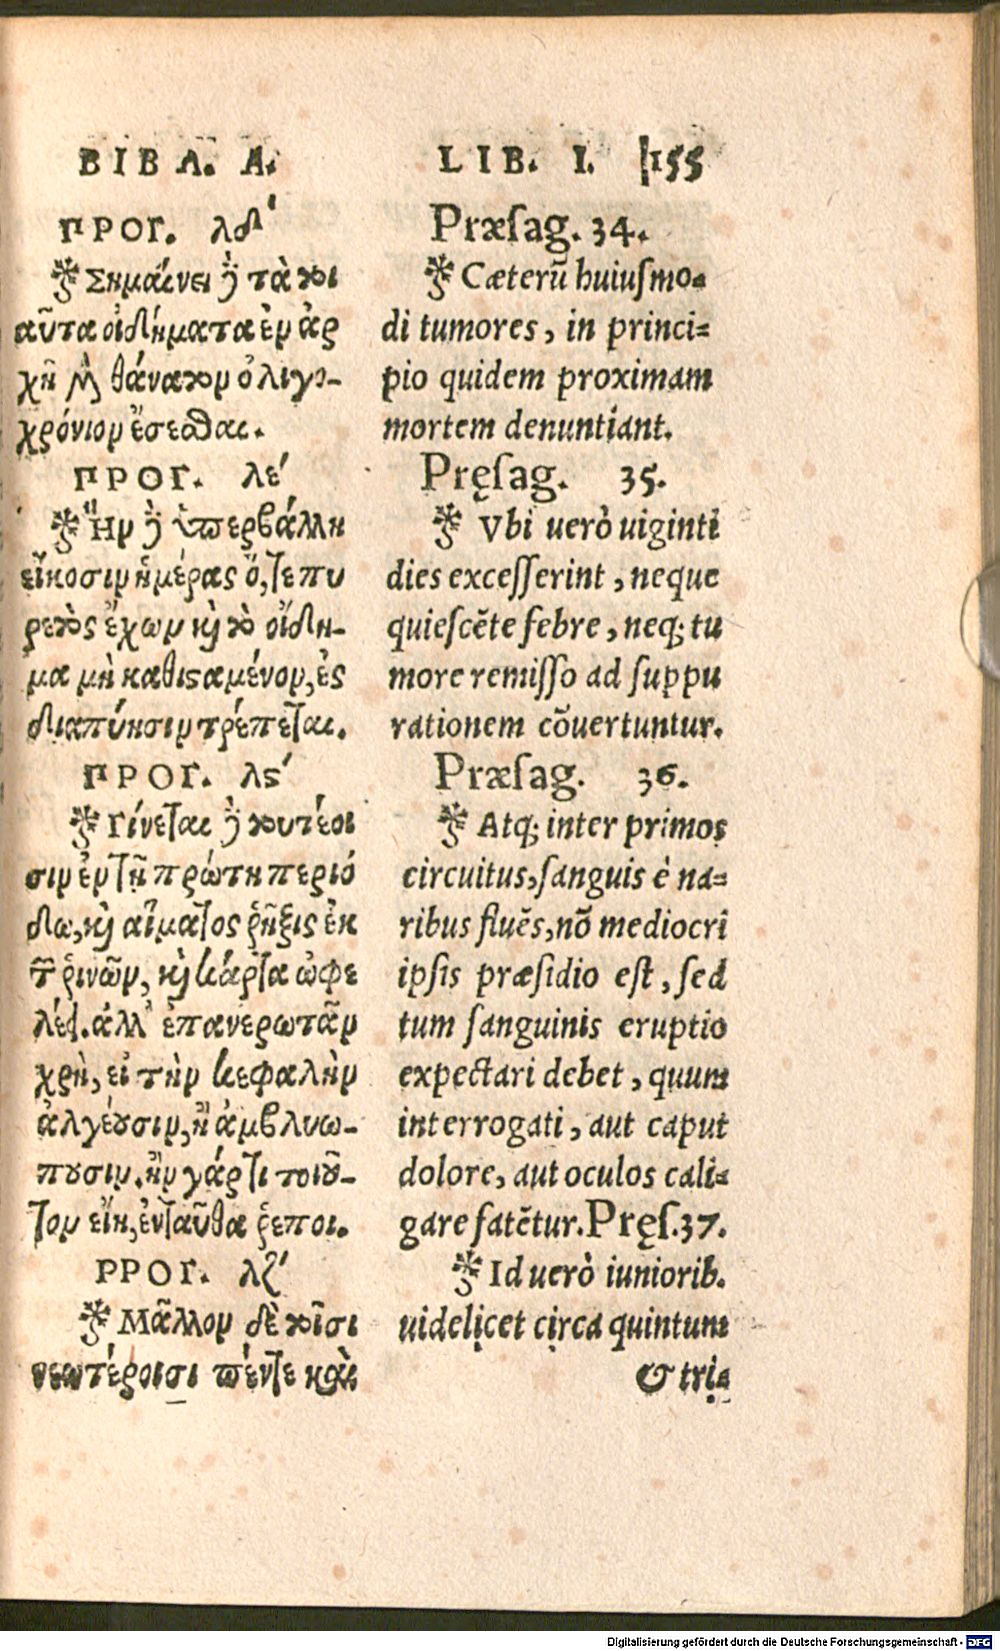 ΒΙΒΛ. Α.
ΠΡΟΓ. λδʹ
Σημαίνει δὲ τὰ τοι
αῦτα οἰδήματα ἐν ἀρ
χῇ μὲν θάνατον ὀλιγο-
χρόνιον ἔσεσθαι.
ΠΡΟΓ. λεʹ
Ἢν δὲ ὑπερβάλλῃ
εἴκοσιν ἡμέρας ὅ,τε πυ
ρετὸς ἔχων καὶ τὸ οἴδη-
μα μὴ καθιςαμένον, ἐς
διαπύησιν τρέπεται.
ΠΡΟΓ. λςʹ
Γίνεται δὲ τουτέοι
σιν ἐν τῇ πρώτῃ περιό
δω, καὶ αἵματος ῥῆξις ἐκ
τῶν ῥινῶν, καὶ κάρτα ὠφε
λέει. ἀλλ' ἐπανερωτᾶν
χρὴ, εἰ τὴν κεφαλὴν
ἀλγέουσιν, ἢ ἀμβλυώ-
πουσιν. ἢν γάρ τι τοιοῦ-
τον εἴη, ἐνταῦθα ῥέποι.
ΡΡΟΓ. λζʹ
Μᾶλλον δὲ τοῖσι
νεωτέροισι πέντε καὶ
LIB. I. 155
Præſag. 34.
Cæterũ huiuſmo-
di tumores, in princi-
pio quidem proximam
mortem denuntiant.
Pręſag. 35.
Vbi uerò uiginti
dies exceſſerint, neque
quieſcẽte febre, neq; tu
more remiſſo ad ſuppu
rationem cõuertuntur.
Præſag. 36.
Atq; inter primos
circuitus, ſanguis è na-
ribus fluẽs, nõ mediocri
ipſis præſidio eſt, ſed
tum ſanguinis eruptio
expectari debet, quum
interrogati, aut caput
dolore, aut oculos cali-
gare fatẽtur. Pręſ. 37.
Id uerò iuniorib.
uidelicet circa quintum
& tri-
Digitalisierung gefördert durch die Deutsche Forschungsgemeinschaft - DFG